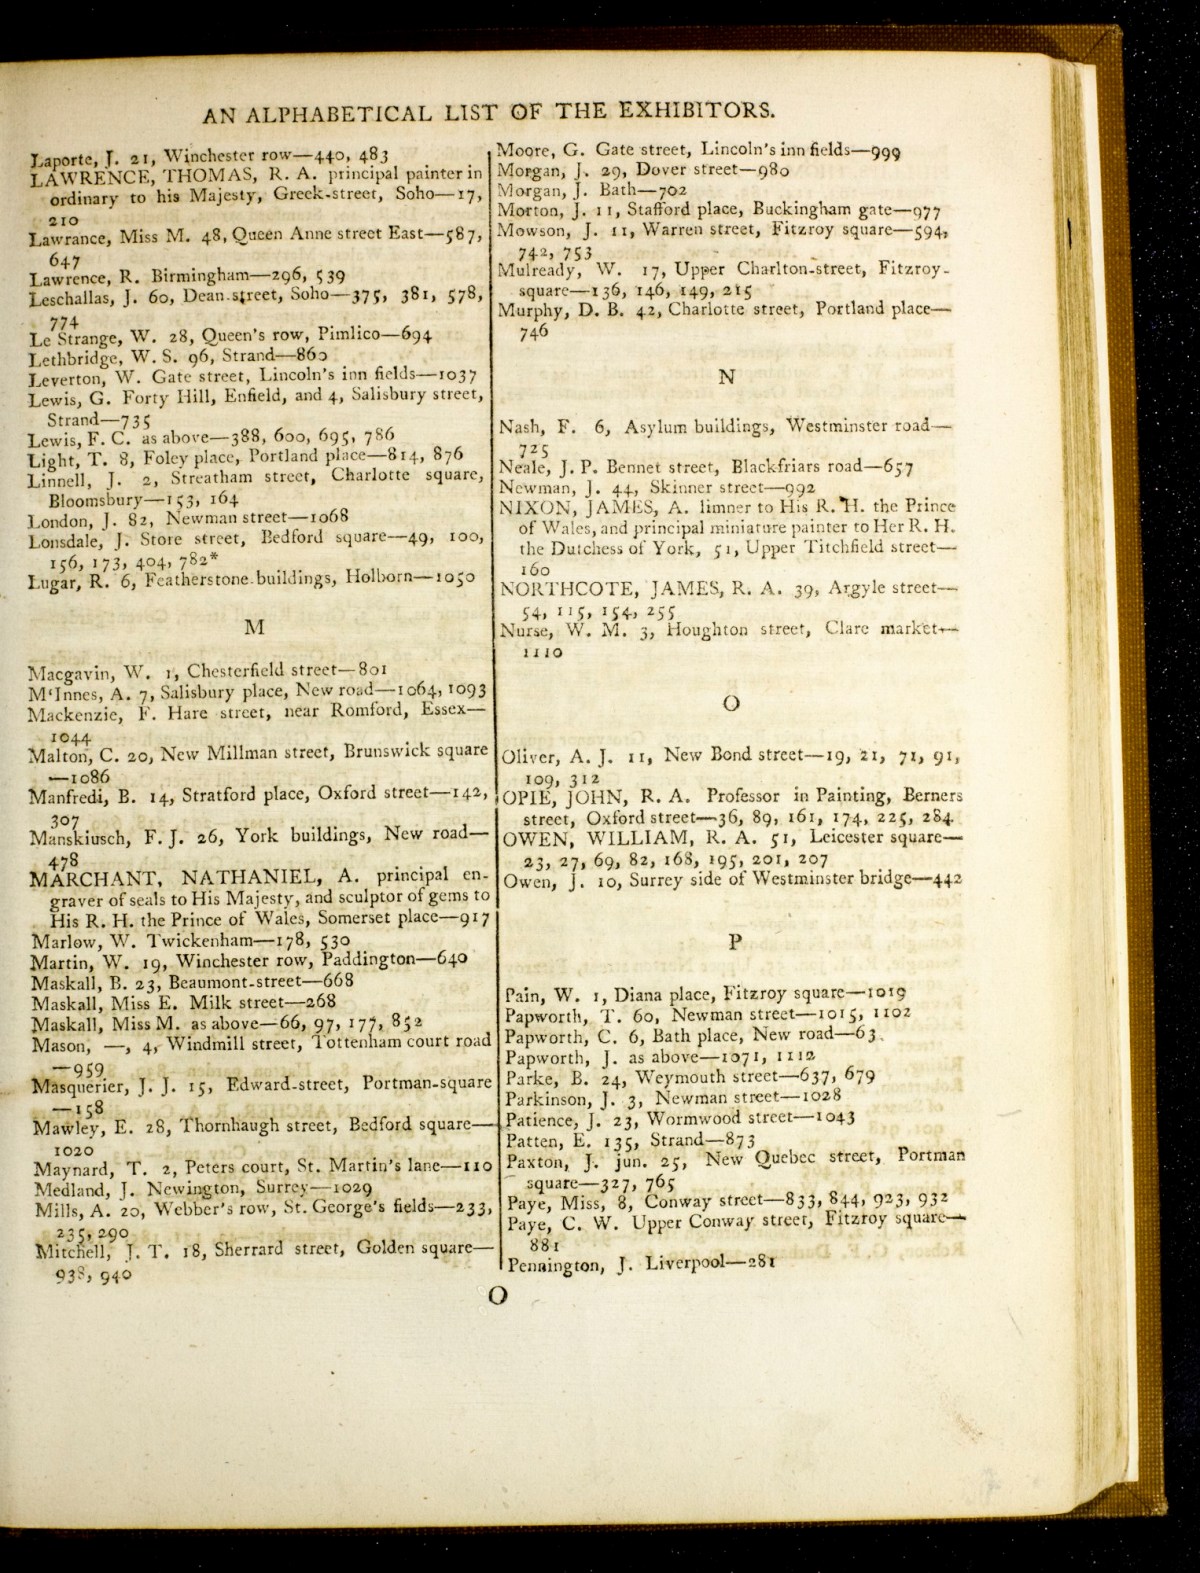 AN ALPHABETICAL LIST OF THE EXHIBITORS.
Laporte, J. 21, Winchester row—440, 483
LAWRENCE, THOMAS, R. A. principal painter in
ordinary to his Majesty, Greek-street, Soho—17,
210
Lawrance, Miss M. 48, Queen Anne street East—587,
647
Lawrence, R. Birmingham—296, 539
Leschallas, J. 60, Dean street, Soho—375, 381, 578,
774
Le Strange, W. 28, Queen's row, Pimlico—694
Lethbridge, W. S. 96, Strand—860
Leverton, W. Gate street, Lincoln's inn fields—1037
Lewis, G. Forty Hill, Enfield, and 4, Salisbury street,
Strand—735
Lewis, F. C. as above—388, 600, 695, 786
Light, T. 8, Foley place, Portland place—814, 876
Linnell, J. 2, Streatham street, Charlotte square,
Bloomsbury—153, 164
London, J. 82, Newman street—1068
Lonsdale, J. Store street, Bedford square—49, 100,
156, 173, 404, 782*
Lugar, R. 6, Featherstone-buildings, Holborn—1050
M
Macgavin, W. 1, Chesterfield street—801
M‘Innes, A. 7, Salisbury place, New road—1064, 1093
Mackenzie, F. Hare street, near Romford, Essex—
1044
Malton, C. 20, New Millman street, Brunswick square
—1086
Manfredi, B. 14, Stratford place, Oxford street—142,
307
Manskiusch, F. J. 26, York buildings, New road—
478
MARCHANT, NATHANIEL, A. principal en-
graver of seals to His Majesty, and sculptor of gems to
His R. H. the Prince of Wales, Somerset place—917
Marlow, W. Twickenham—178, 530
Martin, W. 19, Winchester row, Paddington—640
Maskall, B. 23, Beaumont-street—668
Maskall, Miss E. Milk street—268
Maskall, Miss M. as above—66, 97, 177, 852
Mason, —, 4, Windmill street, Tottenham court road
—959
Masquerier, J. J. 15, Edward-street, Portman-square
—158
Mawley, E. 28, Thornhaugh street, Bedford square—
1020
Maynard, T. 2, Peters court, St. Martin's lane—110
Medland, J. Newington, Surrey—1029
Mills, A. 20, Webber's row, St. George's fields—233,
235, 290
Mitchell, J. T. 18, Sherrard street, Golden square—
938, 940
Moore, G. Gate street, Lincoln's inn fields—999
Morgan, J. 29, Dover street—980
Morgan, J. Bath—702
Morton, J. 11, Stafford place, Buckingham gate—977
Mowson, J. 11, Warren street, Fitzroy square—594,
742, 753
Mulready, W. 17, Upper Charlton-street, Fitzroy-
square—136, 146, 149, 215
Murphy, D. B. 42, Charlotte street, Portland place—
746
N
Nash, F. 6, Asylum buildings, Westminster road—
725
Neale, J. P. Bennet street, Blackfriars road—657
Newman, J. 44, Skinner street—992
NIXON, JAMES, A. limner to His R. H. the Prince
of Wales, and principal miniature painter to Her R. H.
the Dutchess of York, 51, Upper Titchfield street—
160
NORTHCOTE, JAMES, R. A. 39, Argyle street—
54, 115, 154, 255
Nurse, W. M. 3, Houghton street, Clare market—
1110
O
Oliver, A. J. 11, New Bond street—19, 21, 71, 91,
109, 312
OPIE, JOHN, R. A. Professor in Painting, Berners
street, Oxford street—36, 89, 161, 174, 225, 284
OWEN, WILLIAM, R. A. 51, Leicester square—
23, 27, 69, 82, 168, 195, 201, 207
Owen, J. 10, Surrey side of Westminster bridge—442
P
Pain, W. 1, Diana place, Fitzroy square—1019
Papworth, T. 60, Newman street—1015, 1102
Papworth, C. 6, Bath place, New road—63
Papworth, J. as above—1071, 1112
Parke, B. 24, Weymouth street—637, 679
Parkinson, J. 3, Newman street—1028
Patience, J. 23, Wormwood street—1043
Patten, E. 135, Strand—873
Paxton, J. jun. 25, New Quebec street, Portman
square—327, 765
Paye, Miss, 8, Conway street—833, 844, 923, 932
Paye, C. W. Upper Conway street, Fitzroy square—
881
Pennington, J. Liverpool—281
O